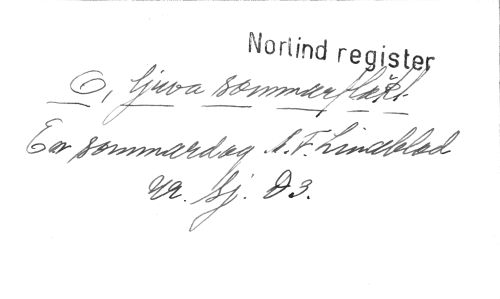 Norlind register
O, ljuva sommarfläkt.
En sommardag A. F. Lindblad
Ur. Sj. D3.